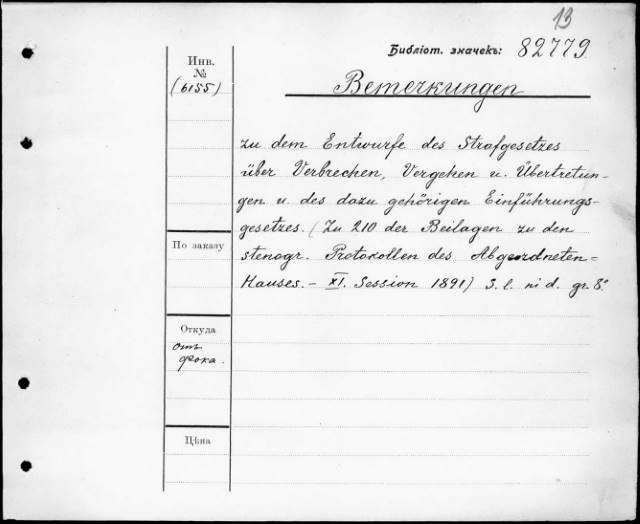 13
Библіот. значекъ: 82779
Инв.
№
(6155)
Bemerkungen
zu dem Entwurfe des Strafgesetzes
über Verbrechen, Vergehen u. Übertretun-
gen u. des dazu gehörigen Einführungs-
gesetzes. (Zu 210 der Beilagen zu den
stenogr. Protokollen des Abgeordneten-
Hauses. - XI. Session 1891) S. l. ni d. gr. 8°
По заказу
Откуда
отъ
Фока.
Цѣна